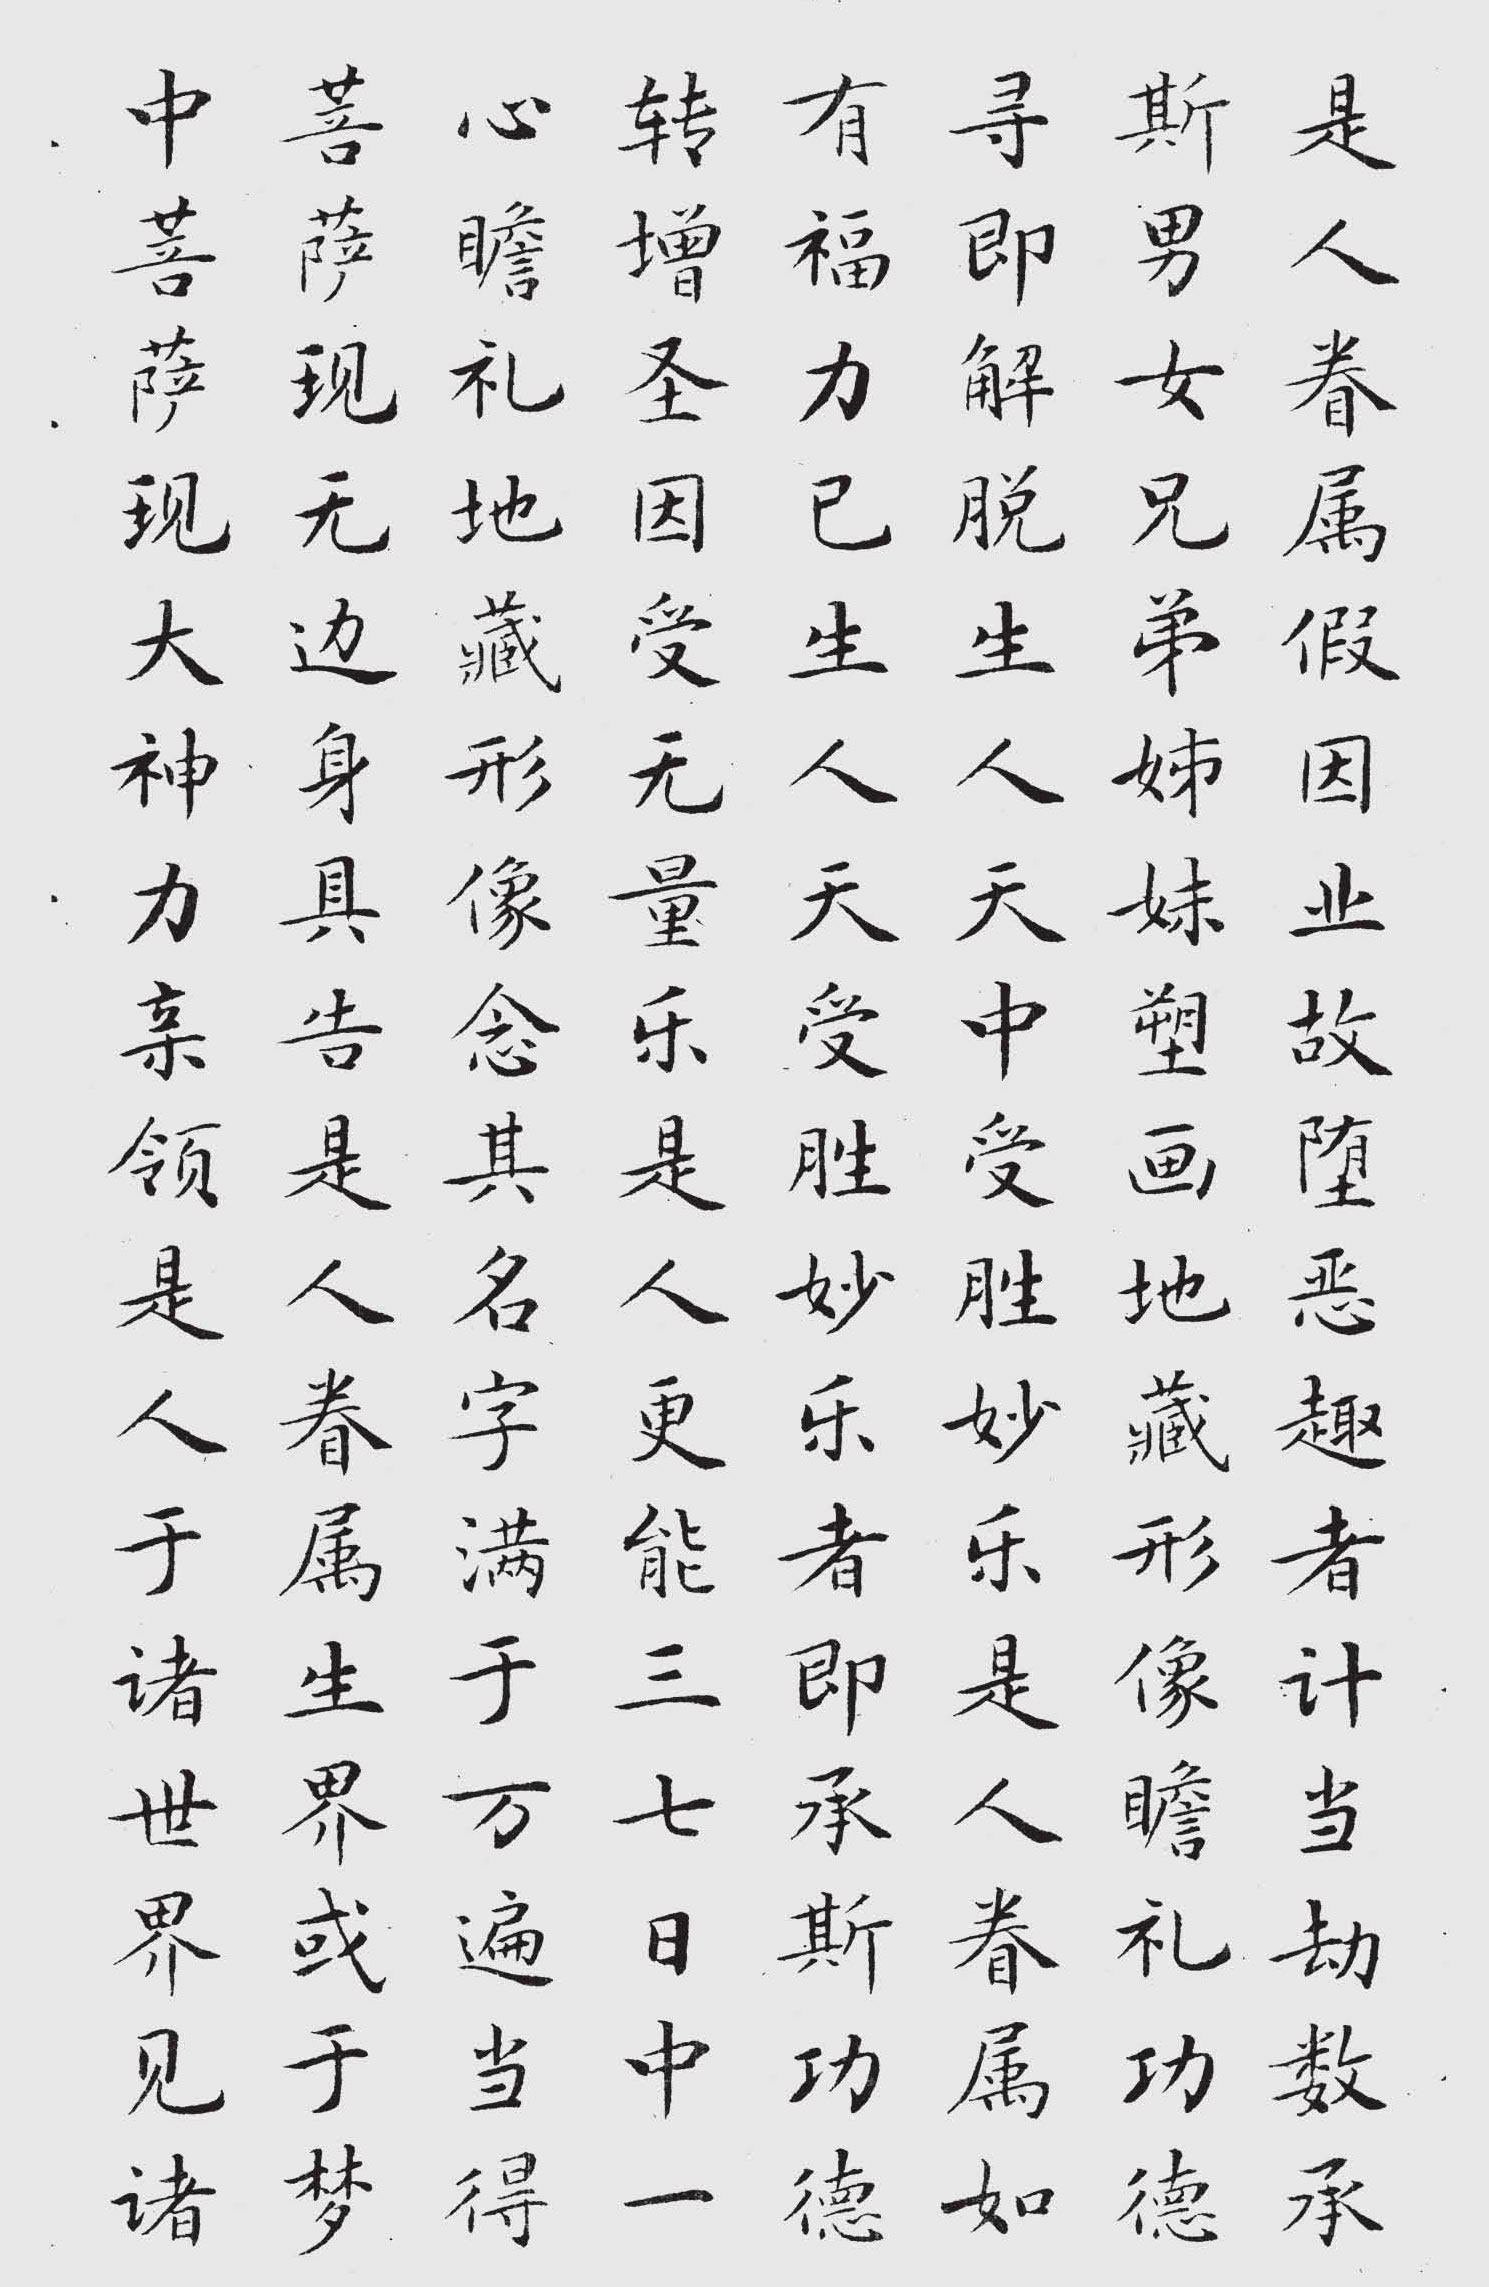 是人眷属假因业故堕恶趣者计当劫数承
斯男女兄弟姊妹塑画地藏形像瞻礼功德
寻即解脱生人天中受胜妙乐是人眷属如
有福力已生人天受胜妙乐者即承斯功德
转增圣因受无量乐是人更能三七日中一
心瞻礼地藏形像念其名字满于万遍当得
菩萨现无边身具告是人眷属生界或于梦
中菩萨现大神力亲领是人于诸世界见诸